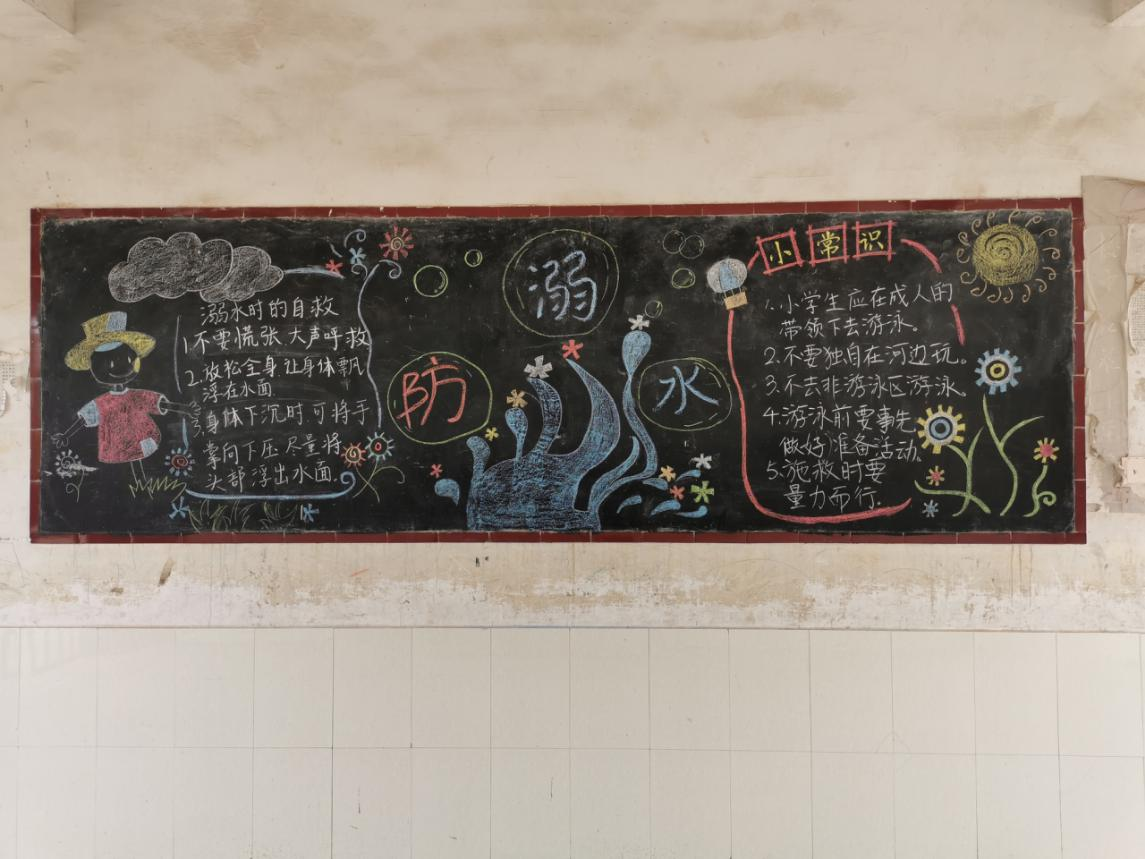 溺水时的自救
1.不要慌张大声呼救
2.放松全身让身体飘
浮在水面.
3.身体下沉时可将手
掌向下压尽量将
头部浮出水面.
防溺水
小常识
1.小学生应在成人的
带领下去游泳。
2.不要独自在河边玩。
3.不去非游泳区游泳.
4.游泳前要事先
做好准备活动.
5.施救时要
量力而行.